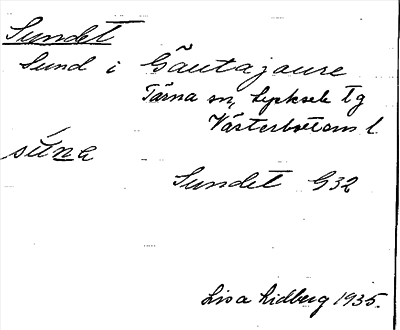 Sundet
Sund i Gäutajaure
Tärna sn, Lycksele tg
Västerbottens l.
súna
Sundet G32
Lisa Lidberg 1935.